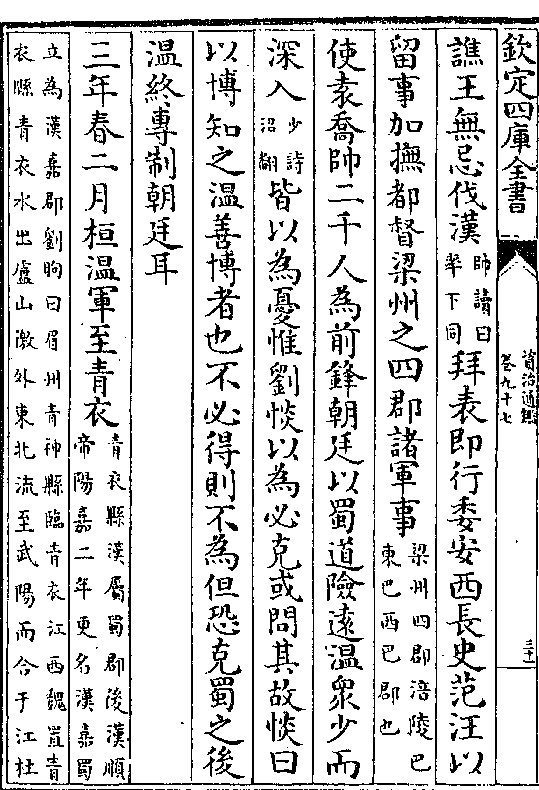 欽定四庫全書
資治通鑑
卷九十七
譙王無忌伐漢帥讀曰率下同拜表即行委安西長史范汪以
留事加撫都督梁州之四郡諸軍事梁州四郡涪陵巴東巴西巴郡也
使袁喬帥二千人為前鋒朝廷以蜀道險遠溫衆少而
深入少詩沼翻皆以為憂惟劉惔以為必克或問其故惔曰
以博知之溫善博者也不必得則不為但恐克蜀之後
溫終專制朝廷耳
三年春二月桓溫軍至青衣青衣縣漢屬蜀郡後漢順帝陽嘉二年更名漢嘉蜀
立為漢嘉郡劉昫曰眉州青神縣臨青衣江西魏置青衣縣青衣水出盧山徼外東北流至武陽而合于江杜